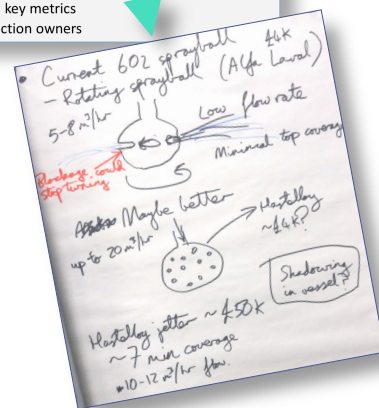 key metrics
ction owners
• Current 602 sprayball £4K
– Rotating sprayball (Alfa Laval)
5-8 m³/hr
Low flow rate
Minimal top coverage
Blockage could
stop turning
Maybe better
up to 20 m³/hr
Hastelloy
~£4K?
Shadowing
in vessel?
Hastelloy jetter ~ £50K
~7 min coverage
•10-12 m³/hr flow.